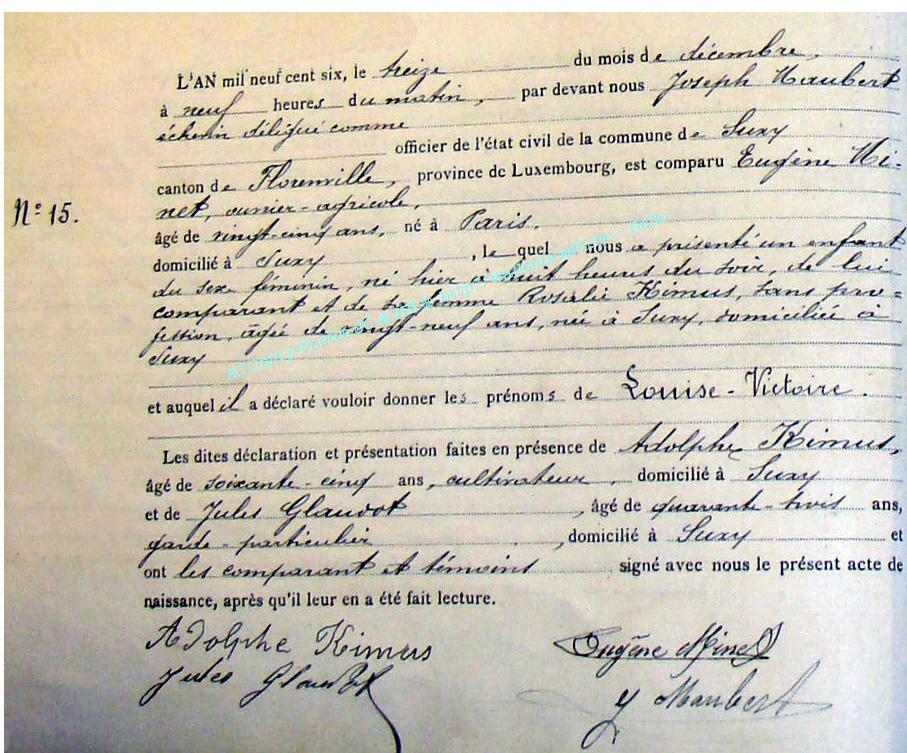 L'AN mil neuf cent six, le treize du mois de décembre,
à neuf heures du matin, par devant nous Joseph Maubert
échevin délégué comme
officier de l'état civil de la commune de Suxy
canton de Florenville, province de Luxembourg, est comparu Eugène Mi-
net, ouvrier-agricole,
N° 15.
âgé de vingt-cinq ans, né à Paris.
domicilié à Suxy, le quel nous a présenté un enfant
du sexe féminin, né hier à huit heures du soir, de lui
comparant et de sa femme Rosalie Kimus, sans pro=
fession, âgée de vingt-neuf ans, née à Suxy, domiciliée à
Suxy
et auquel il a déclaré vouloir donner les prénoms de Louise-Victoire.
Les dites déclaration et présentation faites en présence de Adolphe Kimus,
âgé de soixante-cinq ans, cultivateur, domicilié à Suxy
et de Jules Glaudot, âgé de quarante-trois ans,
garde-particulier, domicilié à Suxy et
ont les comparant et témoins signé avec nous le présent acte de
naissance, après qu'il leur en a été fait lecture.
Adolphe Kimus Eugène Minet
Jules Glaudot J Maubert